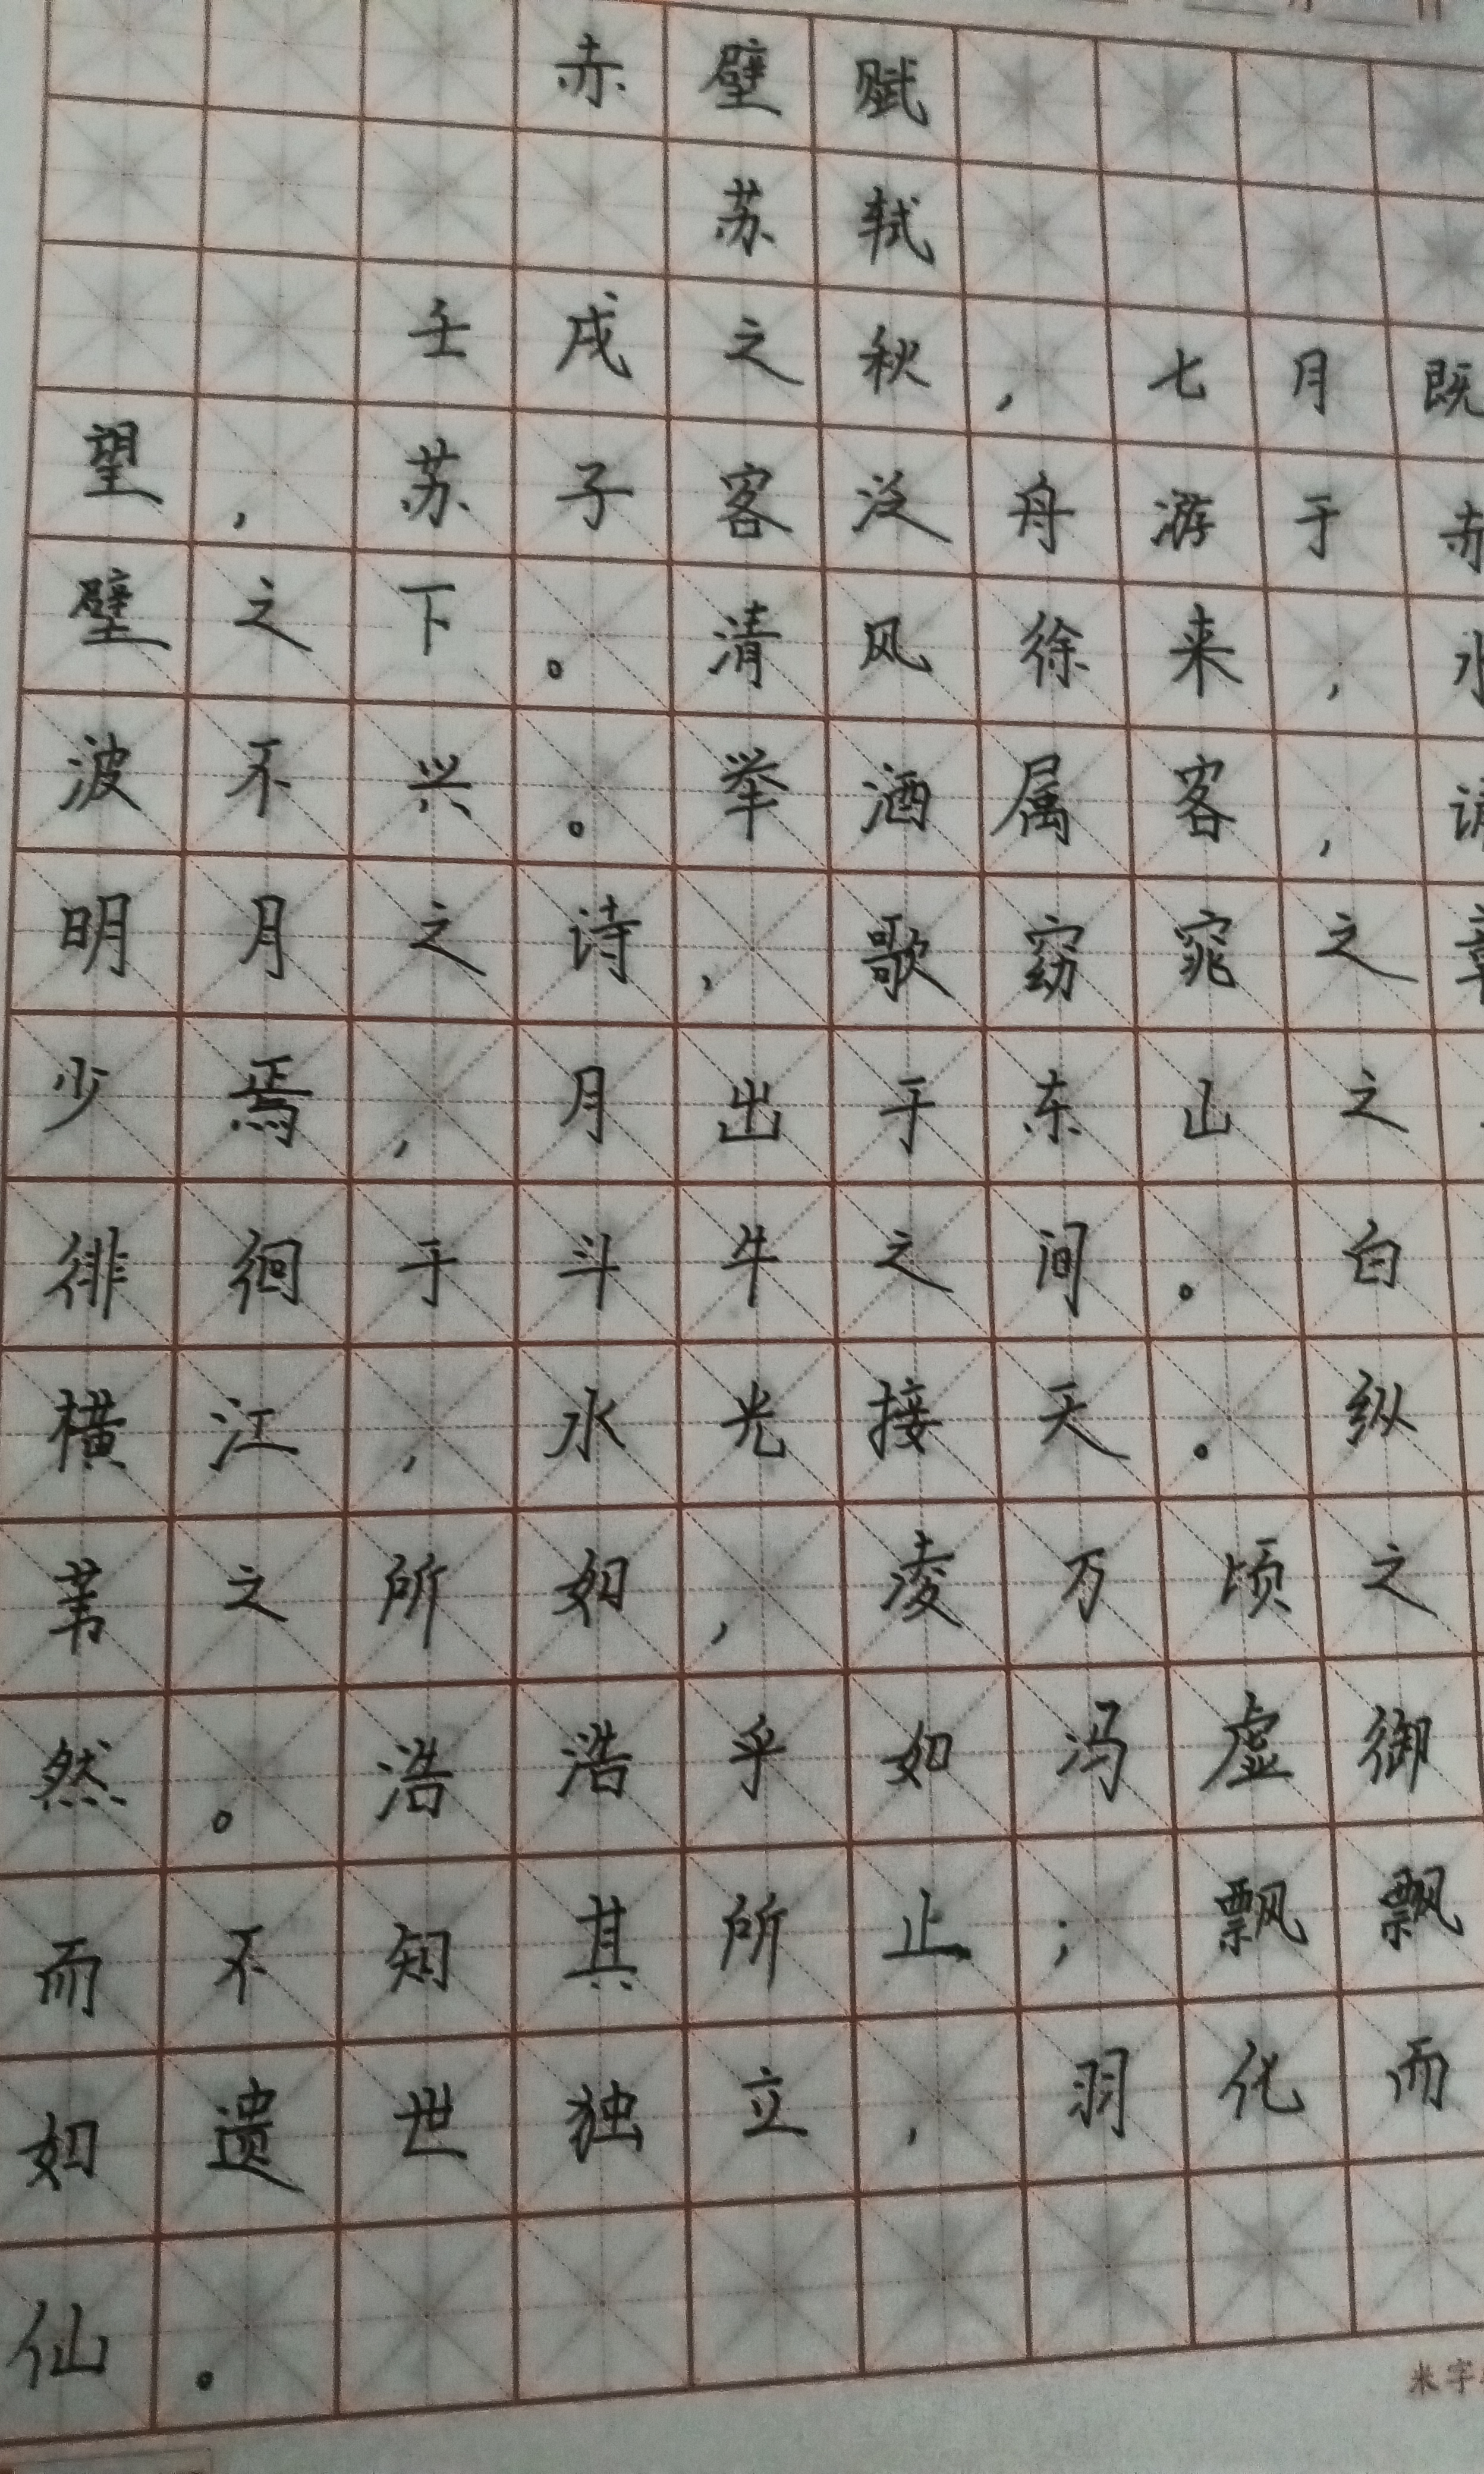 赤壁赋
苏轼
壬戌之秋，七月既
望，苏子客泛舟游于赤
壁之下。清风徐来，水
波不兴。举酒属客，诵
明月之诗，歌窈窕之章
少焉，月出于东山之
徘徊于斗牛之间。白
横江，水光接天。纵
苇之所如，凌万顷之
然。浩浩乎如冯虚御
而不知其所止；飘飘
如遗世独立，羽化而
仙。
米字